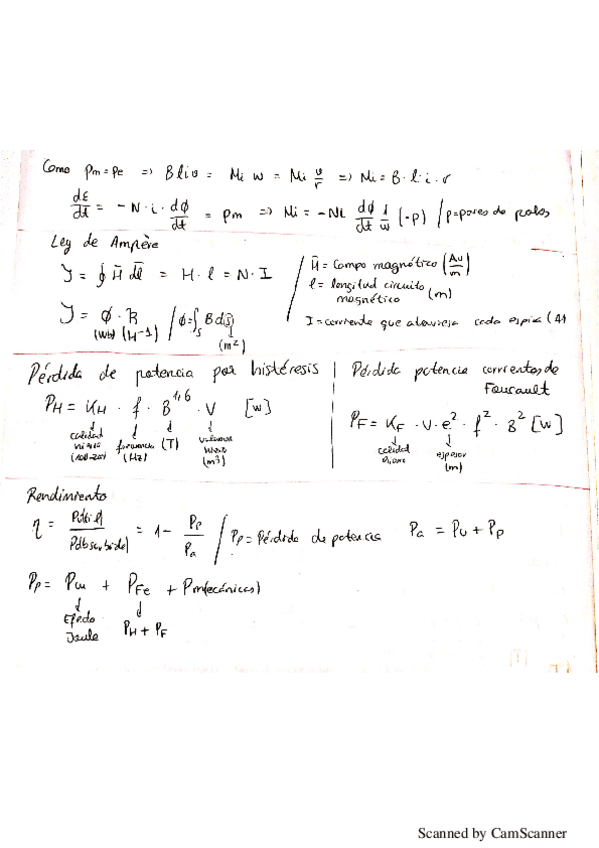 Como Pm = Pe => B l i v = Mi w = Mi v/r => Mi = B · l · i · r
dE/dt = -N · i · dϕ/dt = pm => Mi = -Ni dϕ/dt 1/w (-p) / p = pares de polos
Ley de Ampère
ℑ = ∮ H̄ dl̄ = H · l = N · I / H̄ = Campo magnético (Av/m)
l = longitud circuito magnético (m)
ℑ = ϕ · R / ϕ = ∫s B d(s)
(Wb) (H-1) (m2)
I = corriente que atraviesa cada espira (A)
Pérdida de potencia por histéresis
PH = KH · f · B^1,6 · V [W]
calidad frecuencia (T)
(Hz) (m3)
Pérdida potencia corrientes de Foucault
PF = KF · V · e² · f² · B² [W]
calidad espesor
(m)
Rendimiento
η = P(útil)/P(absorbida) = 1 - Pp/Pa / Pp = Pérdida de potencia Pa = Pu + Pp
Pp = Pcu + PFe + Pm(ecánicas)
Efecto Joule PH + PF
Scanned by CamScanner